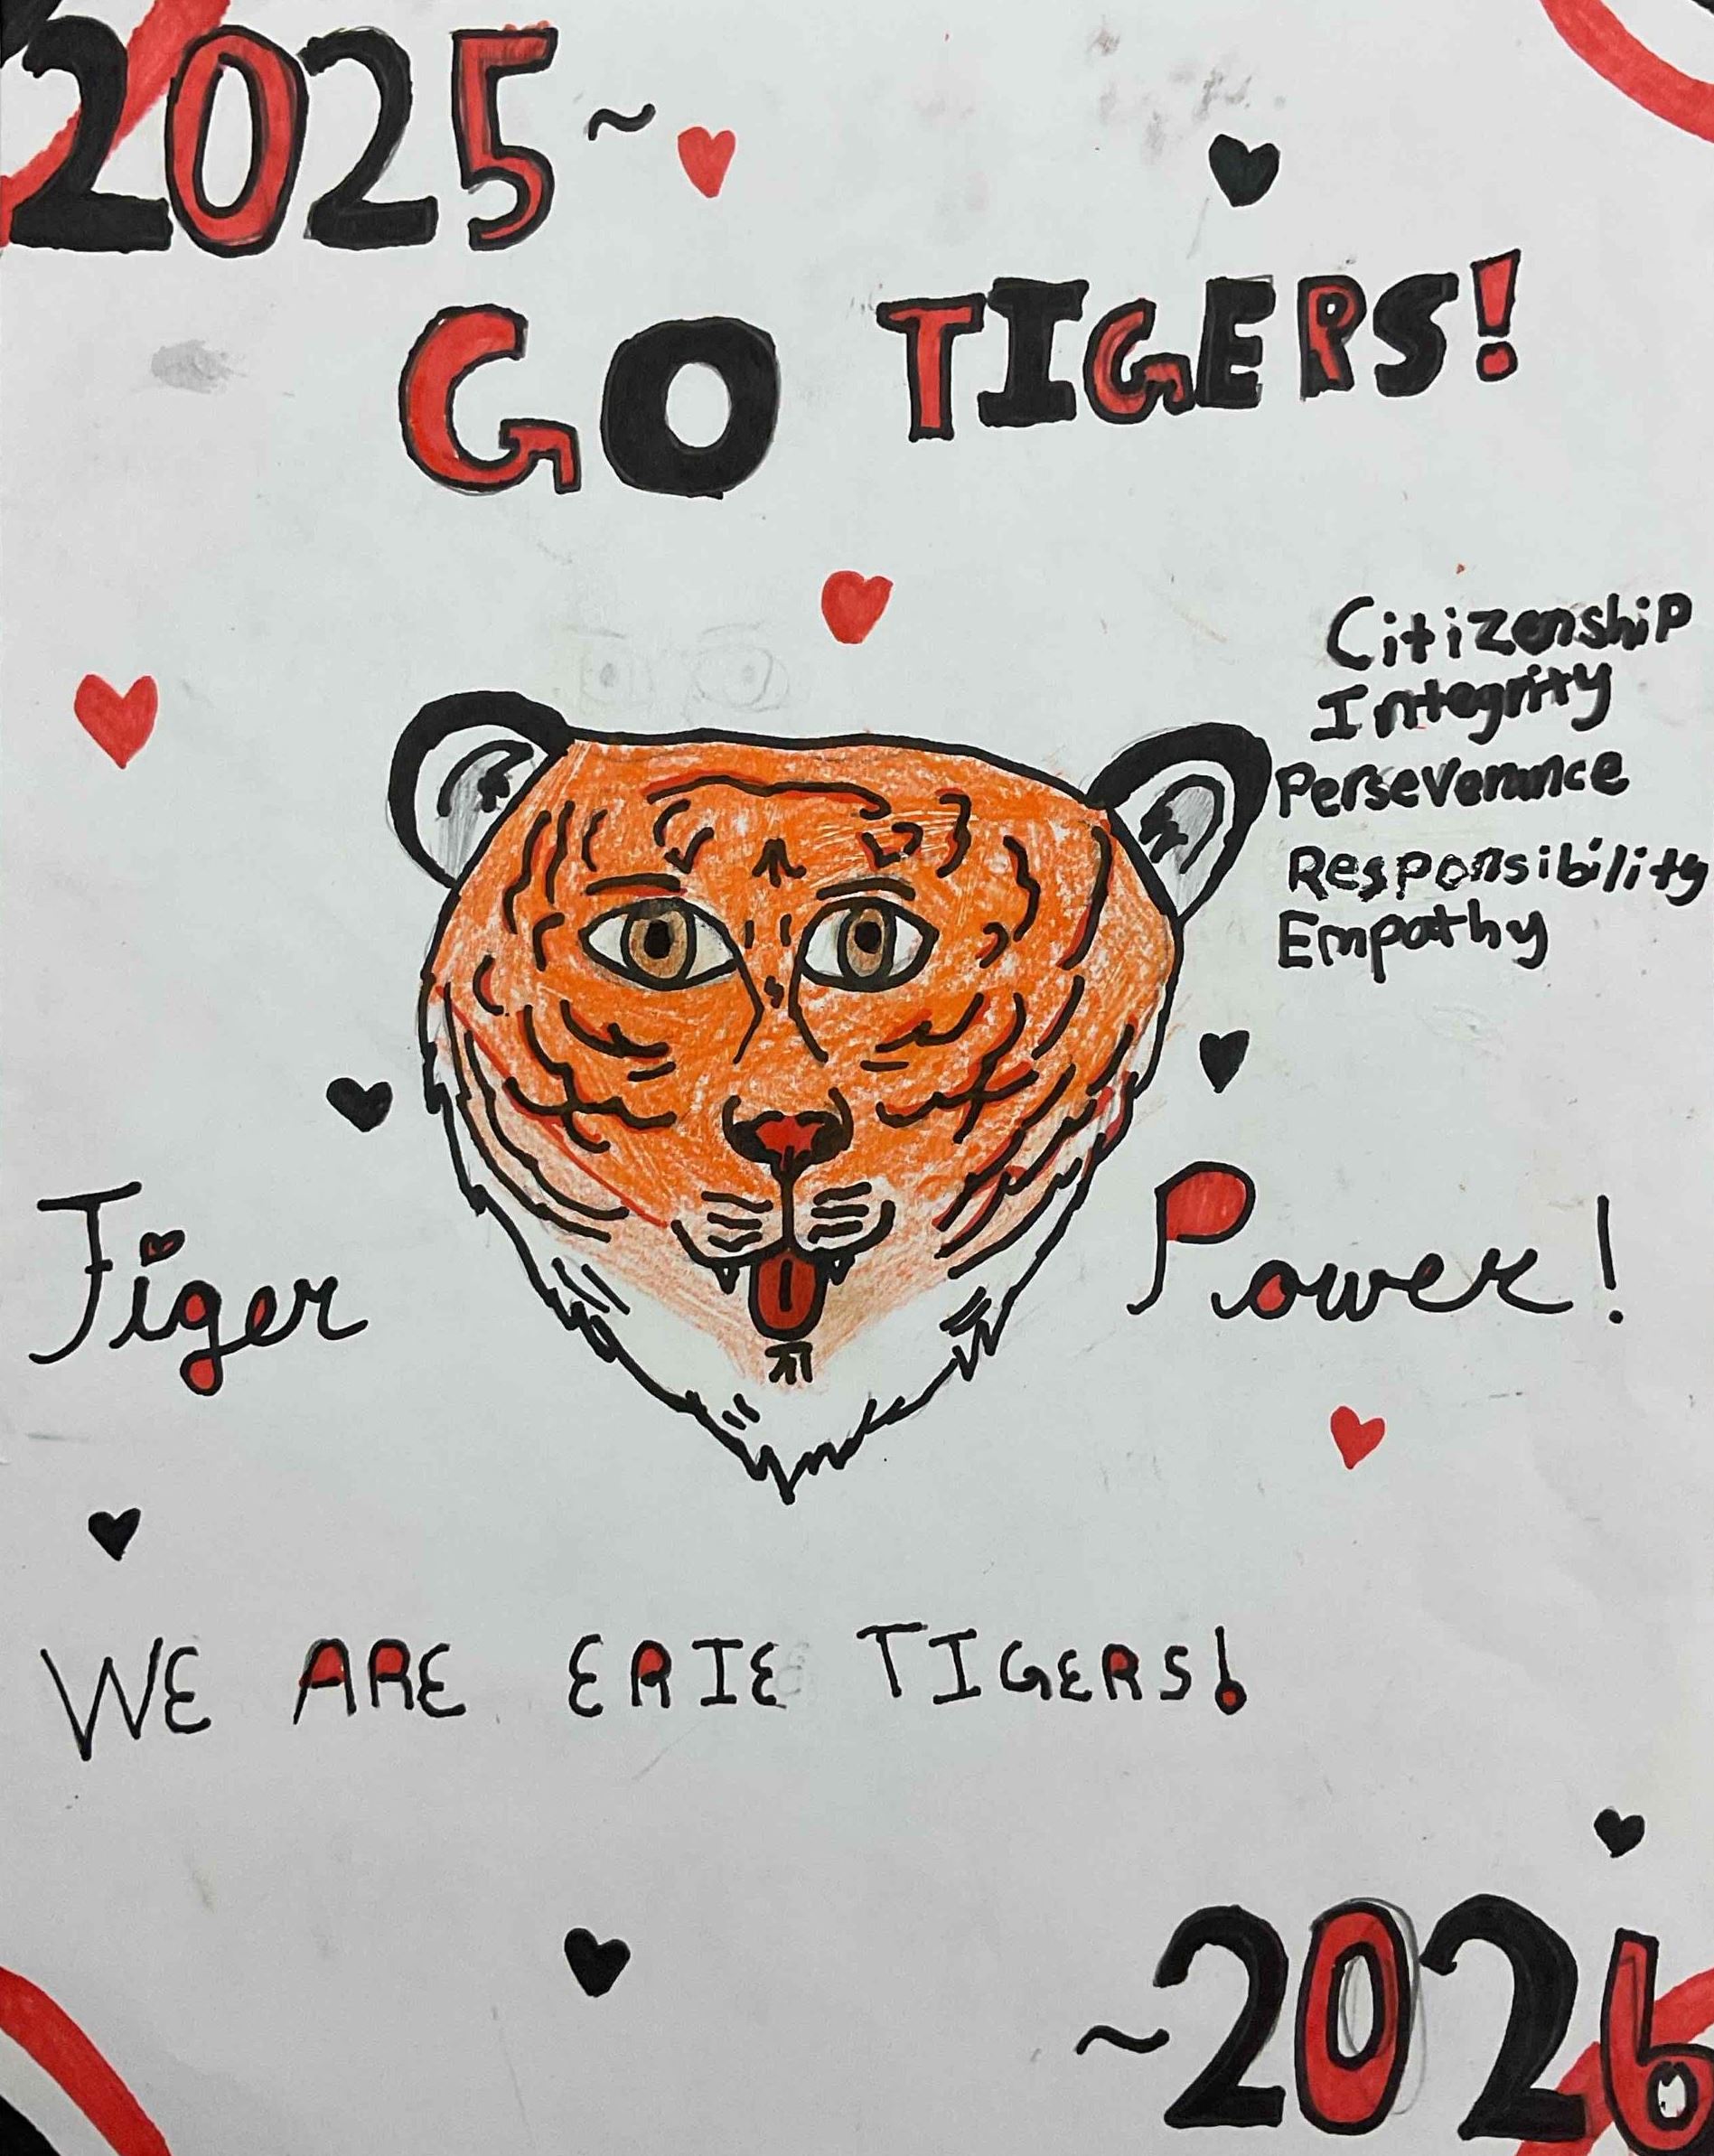 2025~
GO TIGERS!
Citizenship
Integrity
Perseverance
Responsibility
Empathy
Tiger Power!
WE ARE ERIE TIGERS!
~2026